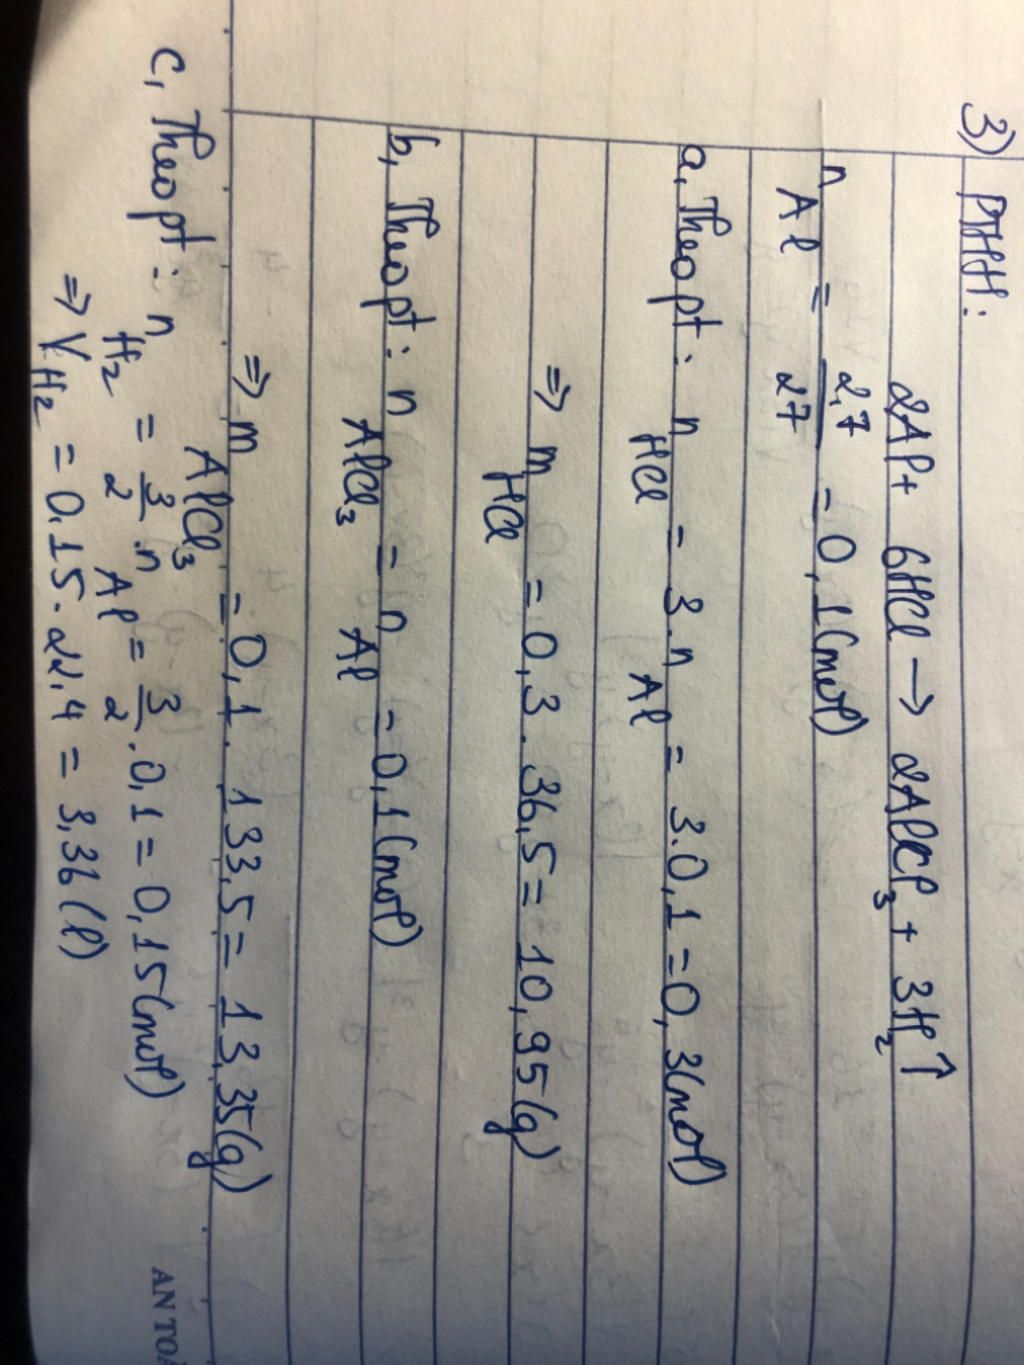 3) PTHH:
2Al + 6HCl → 2AlCl₃ + 3H₂↑
n Al = 2,7/27 = 0,1 (mol)
a, Theo pt: n HCl = 3.n Al = 3.0,1 = 0,3 (mol)
=> m HCl = 0,3.36,5 = 10,95 (g)
b, Theo pt: n AlCl₃ = n Al = 0,1 (mol)
=> m AlCl₃ = 0,1.133,5 = 13,35 (g)
c, Theo pt: n H₂ = 3/2.n Al = 3/2.0,1 = 0,15 (mol)
=> V H₂ = 0,15.22,4 = 3,36 (l)